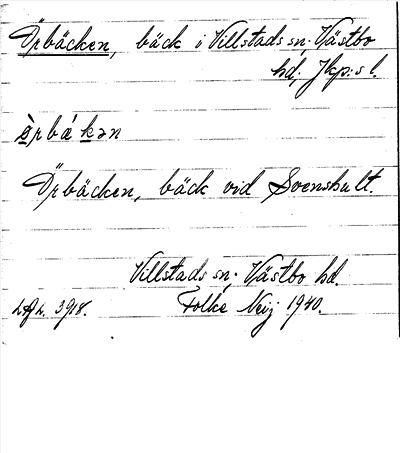 Örbäcken, bäck i Villstads sn. Västbo
hd, Jkp:s l.
ö̀rbá kən
Örbäcken, bäck vid Svenshult.
Villstads sn, Västbo hd.
Folke Neij 1940.